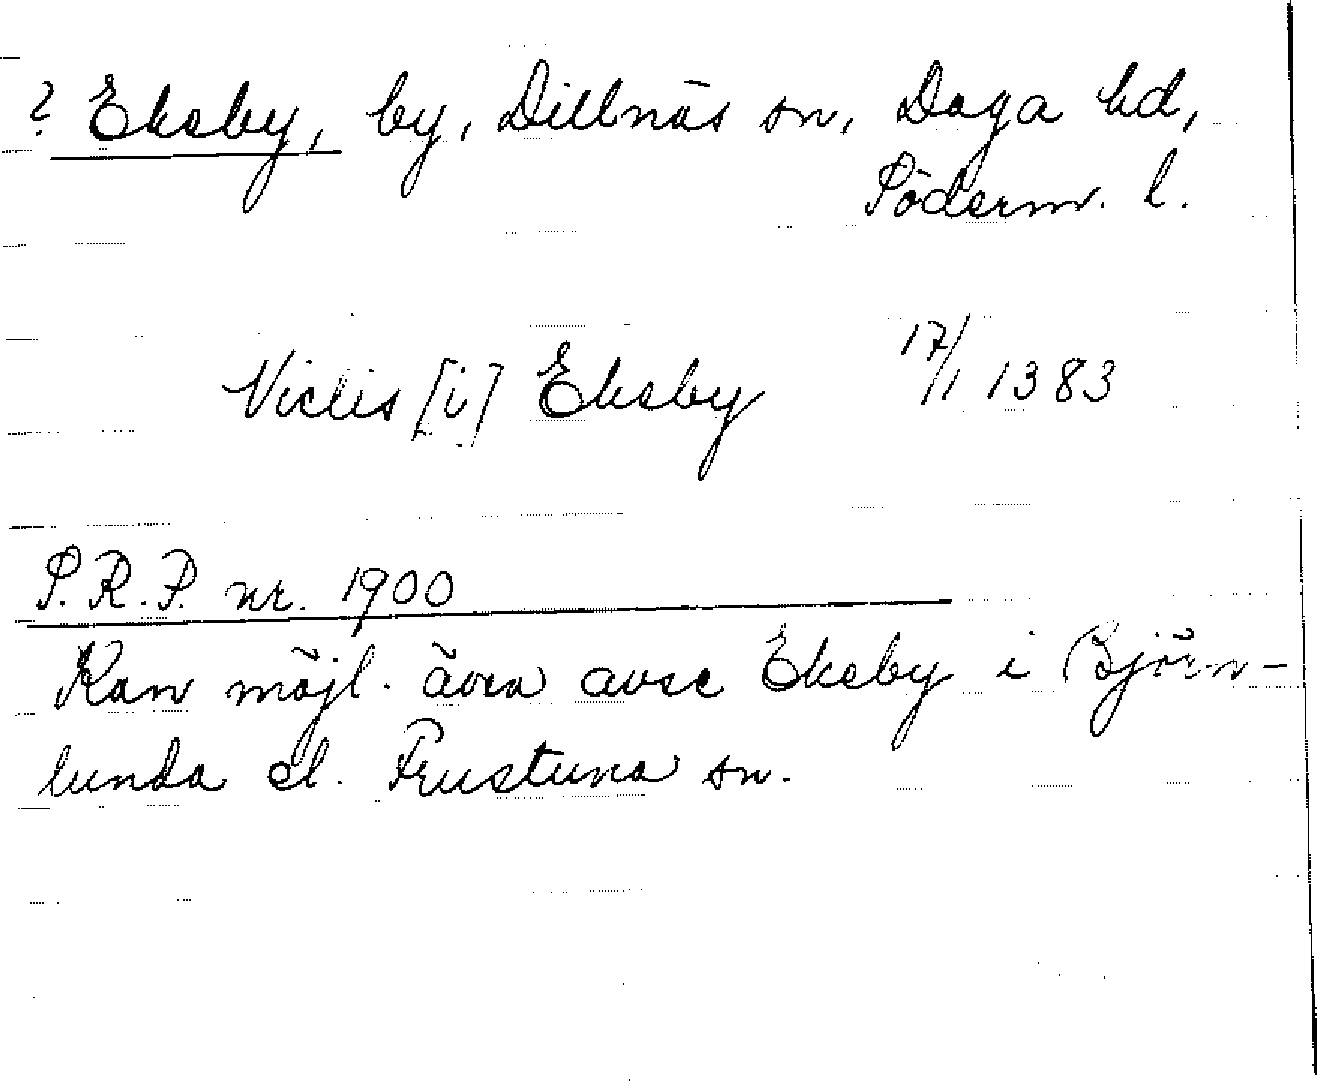 ? Eksby, by, Dillnäs sn, Daga hd,
Söderm. l.
Niclis [i] Eksby 17/1 1383
S.R.P. nr. 1900
Kan möjl. även avse Ekeby i Björn-
lunda el. Frustuna sn.